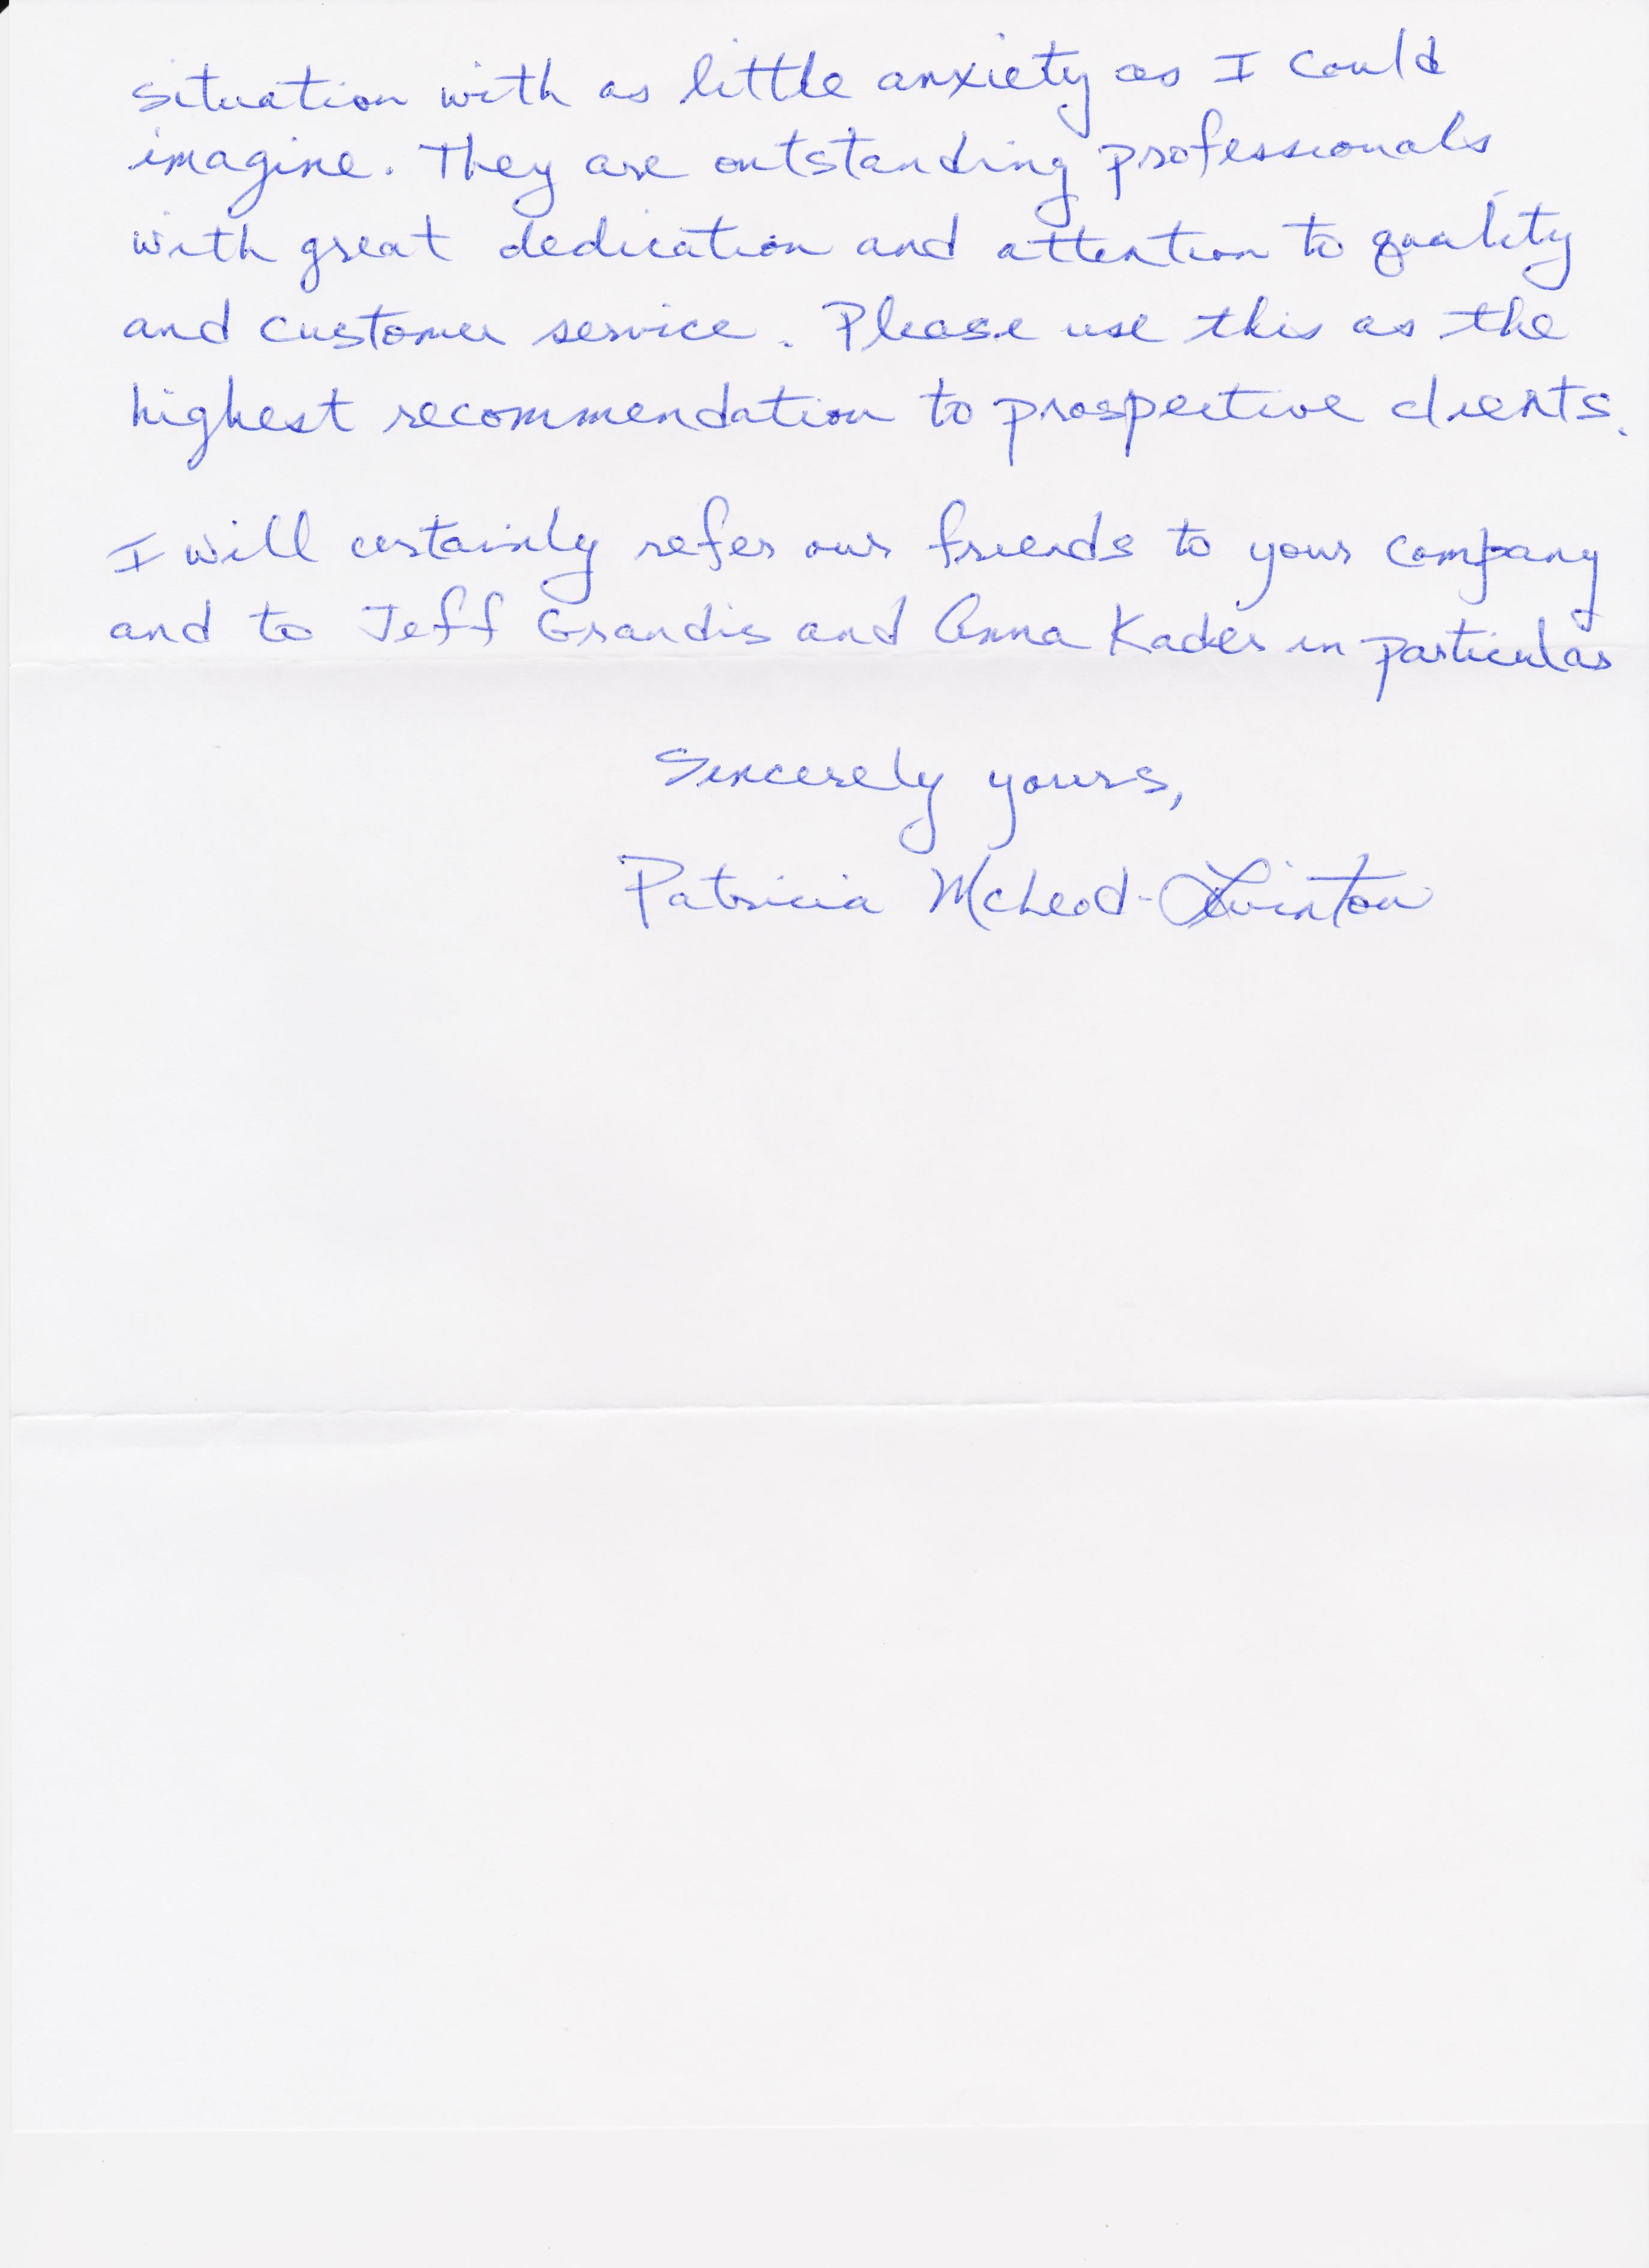 situation with as little anxiety as I could
imagine. They are outstanding professionals
with great dedication and attention to quality
and customer service. Please use this as the
highest recommendation to prospective clients.
I will certainly refer our friends to your company
and to Jeff Grandis and Anna Kader in particular
Sincerely yours,
Patricia McLeod-